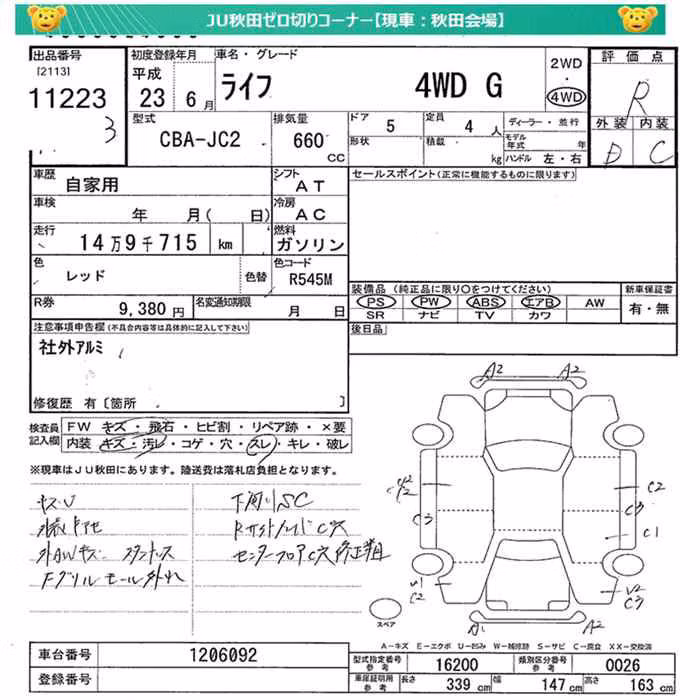 JU秋田ゼロ切りコーナー【現車：秋田会場】
出品番号
[2113]
11223
3
初度登録年月
平成
23 6月
車名・グレード
ライフ 4WD G
2WD
・
4WD
評価点
R
外装 内装
D C
型式
CBA-JC2
排気量
660
CC
ドア 5
形状
定員 4 人
積載 kg
ディーラー・並行
モデル年式 年
ハンドル 左・右
車歴
自家用
シフト
AT
車検
年 月( 日)
冷房
AC
走行
14万9千715 km
燃料
ガソリン
色
レッド
色替
色コード
R545M
R券
9,380円
名変通知期限
月 日
セールスポイント(正常に機能するものに限ります)
装備品 (純正品に限り〇をつけてください)
PS PW ABS エアB AW
SR ナビ TV カワ
新車保証書
有・無
後日品
注意事項申告欄(不具合内容等は具体的に記入して下さい)
社外アルミ
修復歴 有〔箇所 〕
検査員
記入欄
FW キズ・飛石・ヒビ割・リペア跡・×要
内装 キズ・汚レ・コゲ・穴・スレ・キレ・破レ
※現車はJU秋田にあります。陸送費は落札店負担となります。
キズU
外AWキズ
Fグリルモール外れ
下廻りSC
センターフロアC穴修正跡
A2 A2
C2
C3
C1
C3
V1
C2
V2
C3
A1 A2
スペア
A－キズ E－エクボ U－凹み W－補修跡 S－サビ C－腐食 XX－交換済
車台番号
1206092
登録番号
型式指定番号
参考
16200
類別区分番号
参考
0026
車庫証明用
参考
長さ 339 cm
幅 147 cm
高さ 163 cm